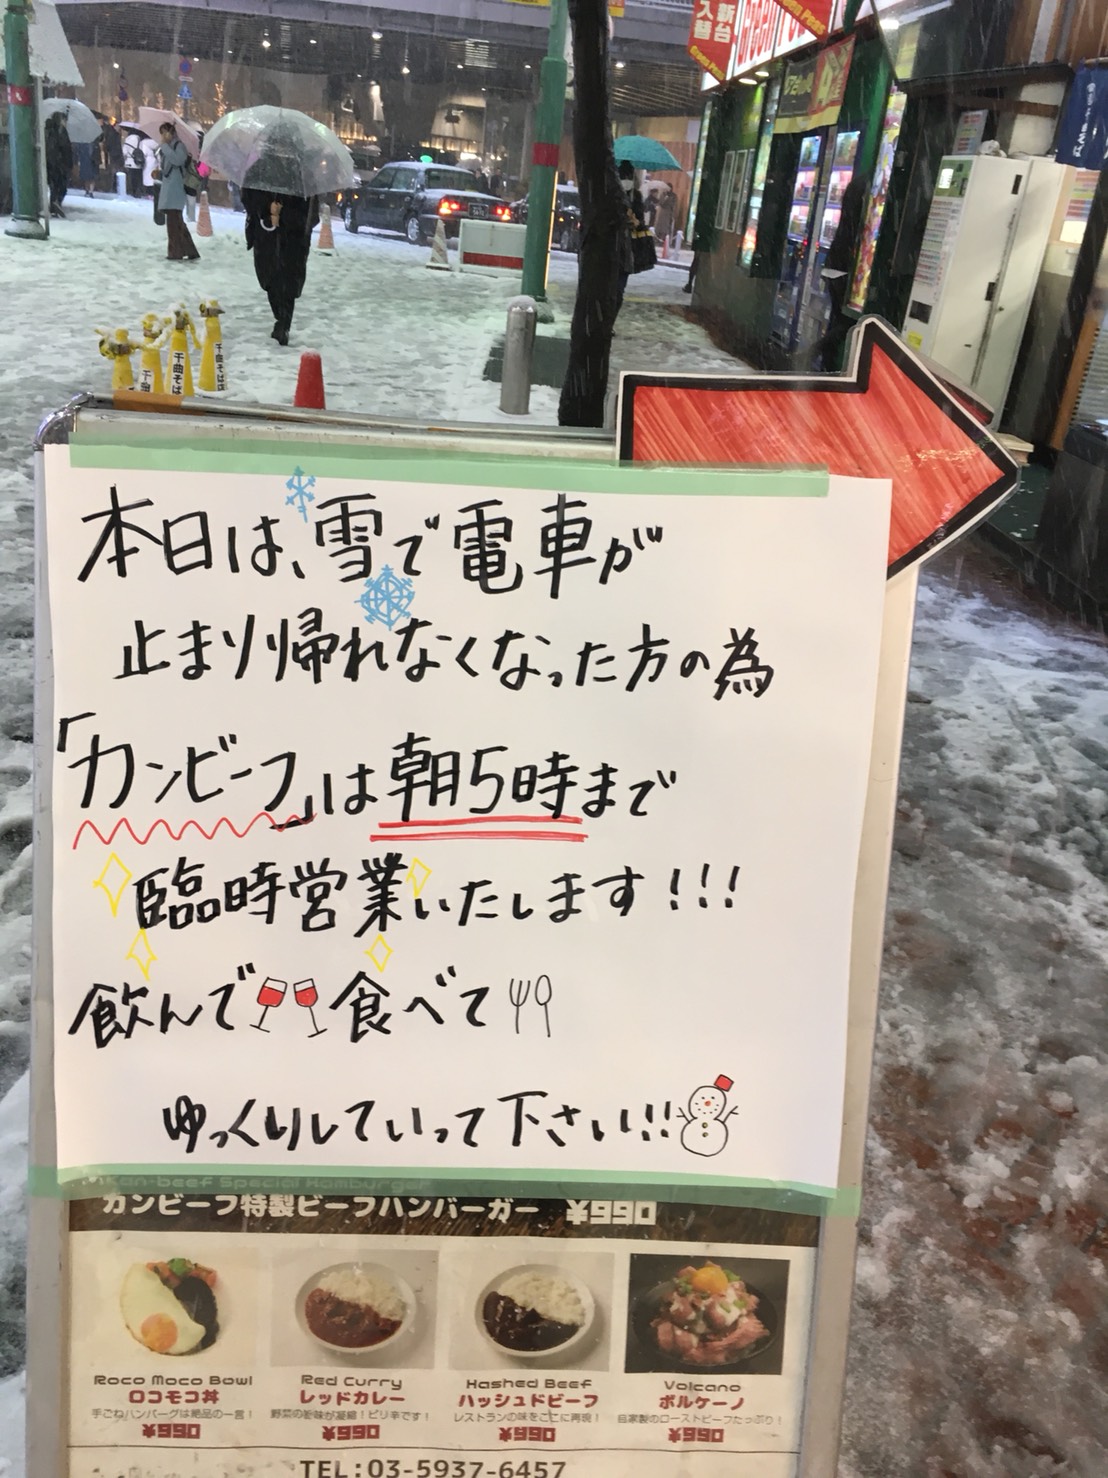 新台
入替
Green Peas
千曲そば
千曲そば
千曲そば店
本日は、雪で電車が
止まり帰れなくなった方の為
「カンビーフ」は朝5時まで
臨時営業いたします!!!
飲んで食べて
ゆっくりしていって下さい!!
Kan-beef Special Hamburger
カンビーフ特製ビーフハンバーガー ¥990
Roco Moco Bowl
ロコモコ丼
手ごねハンバーグは絶品の一言!
¥990
Red Curry
レッドカレー
野菜の旨味が凝縮!ピリ辛です!
¥990
Hashed Beef
ハッシュドビーフ
レストランの味をここに再現!
¥990
Volcano
ボルケーノ
自家製のローストビーフたっぷり!
¥990
TEL:03-5937-6457